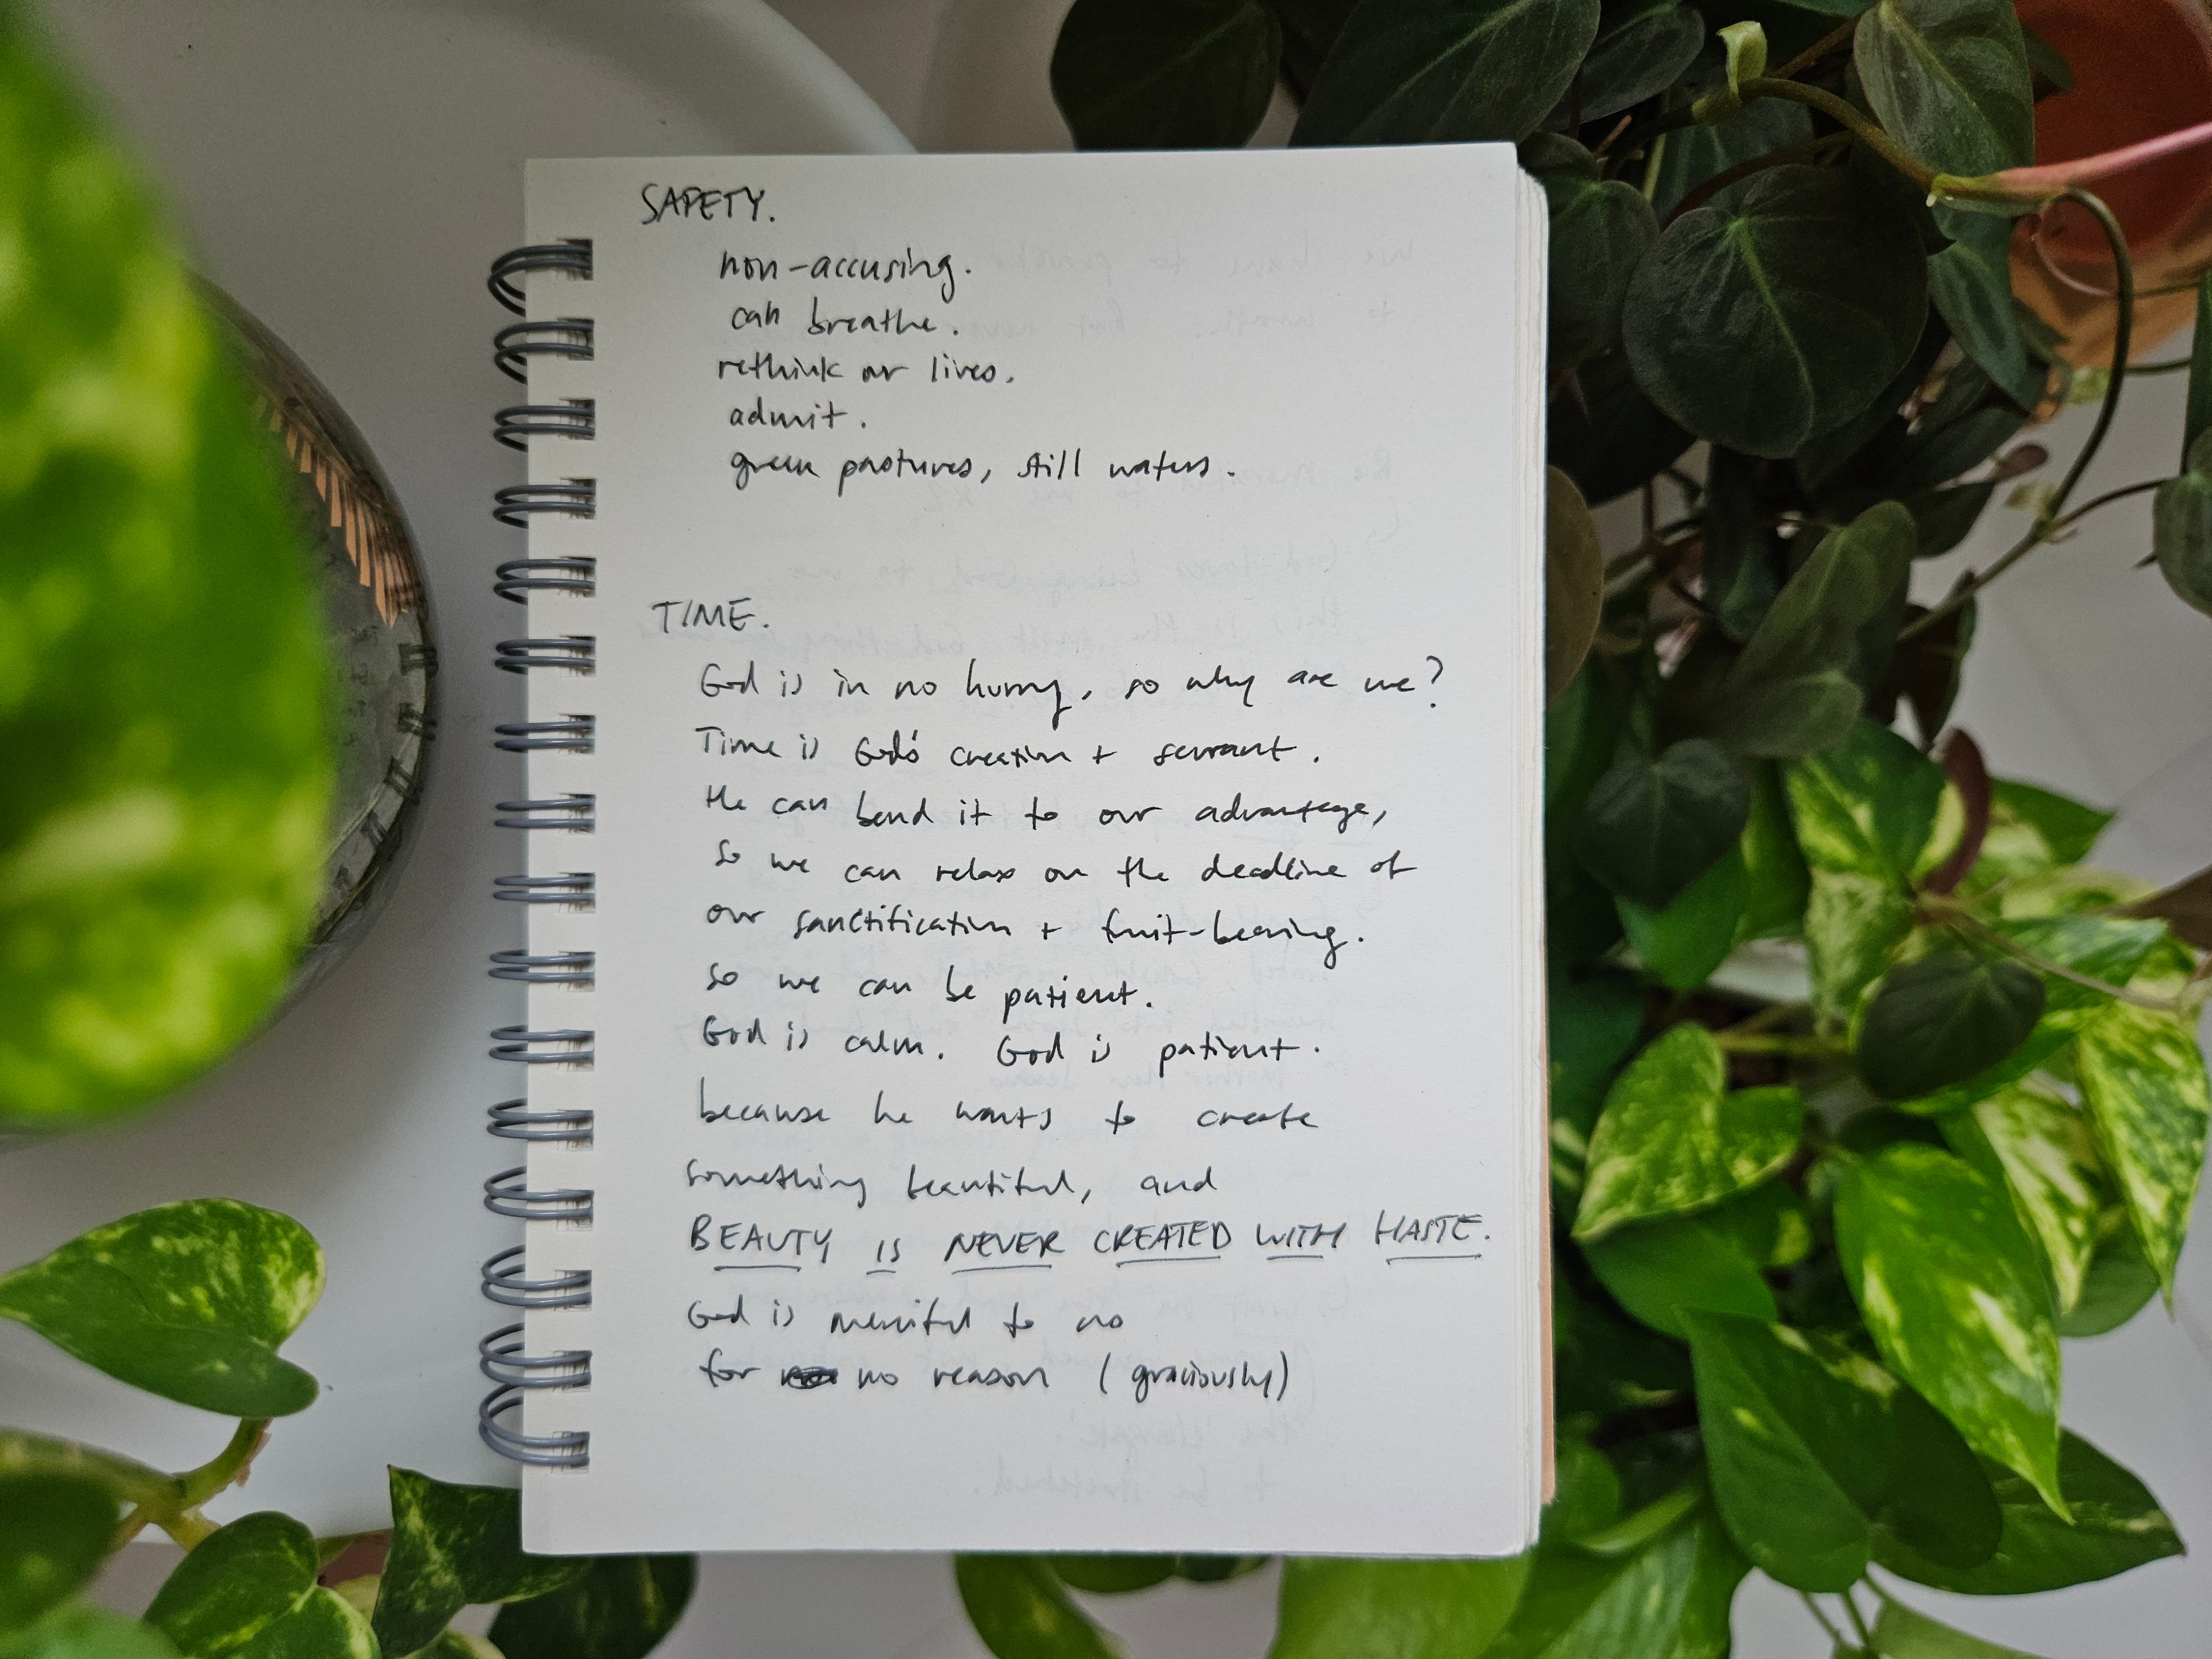 SAFETY.
non-accusing.
can breathe.
rethink our lives.
admit.
green pastures, still waters.
TIME.
God is in no hurry, so why are we?
Time is God's creation + servant.
He can bend it to our advantage,
so we can relax on the deadline of
our sanctification + fruit-bearing.
so we can be patient.
God is calm. God is patient.
because he wants to create
something beautiful, and
BEAUTY IS NEVER CREATED WITH HASTE.
God is merciful to us
for no reason (graciously)